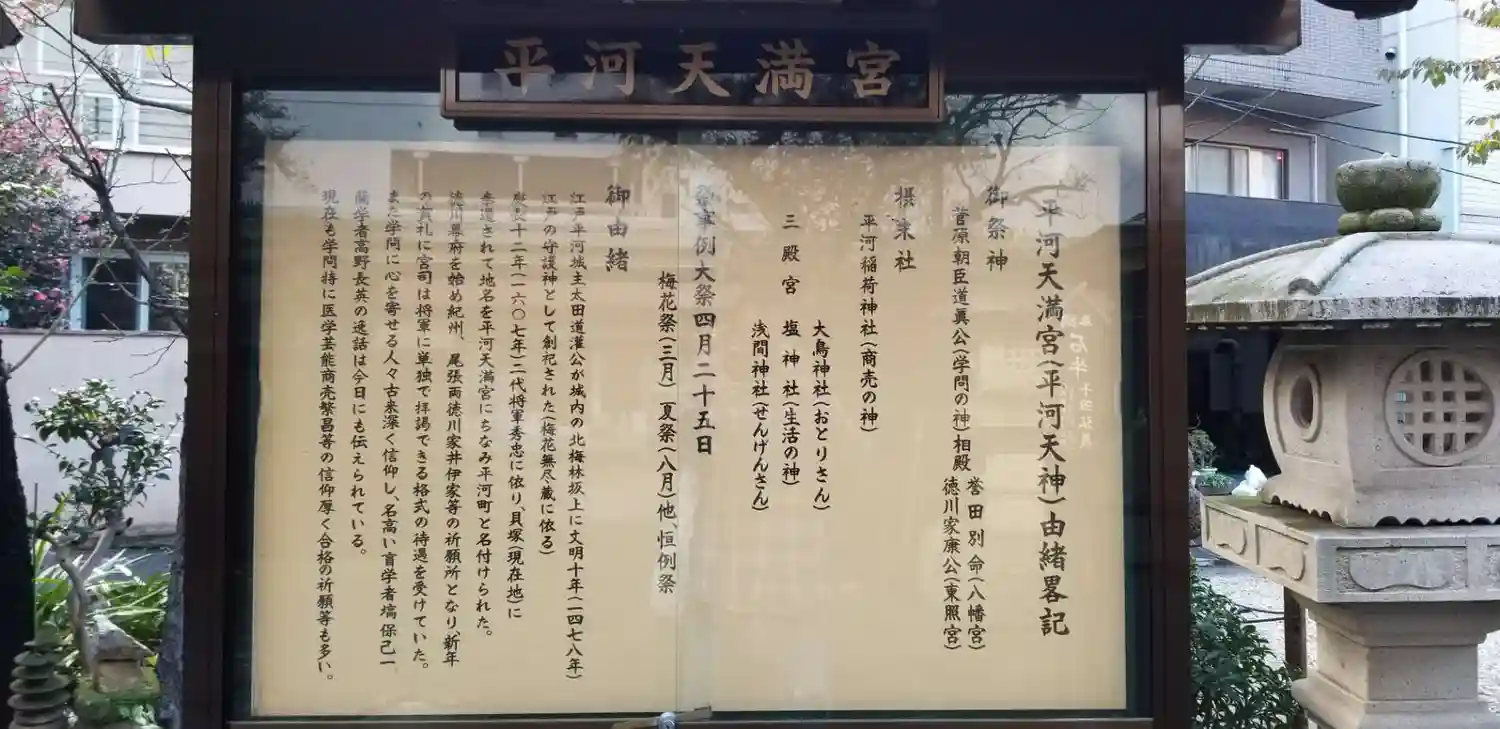 平河天満宮
平河天満宮(平河天神)由緒畧記
御祭神
菅原朝臣道眞公(学問の神)相殿
誉田別命(八幡宮)
徳川家康公(東照宮)
摂末社
平河稲荷神社(商売の神)
大鳥神社(おとりさん)
三殿宮 塩神社(生活の神)
浅間神社(せんげんさん)
祭事例大祭四月二十五日
梅花祭(三月)夏祭(八月)他、恒例祭
御由緒
江戸平河城主太田道灌公が城内の北梅林坂上に文明十年(一四七八年)
江戸の守護神として創祀された(梅花無尽蔵に依る)
慶長十二年(一六〇七年)二代将軍秀忠に依り、貝塚(現在地)に
奉遷されて地名を平河天満宮にちなみ平河町と名付けられた。
徳川幕府を始め紀州、尾張両徳川家井伊家等の祈願所となり、新年
の賀礼に宮司は将軍に単独で拝謁できる格式の待遇を受けていた。
また学問に心を寄せる人々古来深く信仰し、名高い盲学者塙保己一
蘭学者高野長英の逸話は今日にも伝えられている。
現在も学問特に医学芸能商売繁昌等の信仰厚く合格の祈願等も多い。